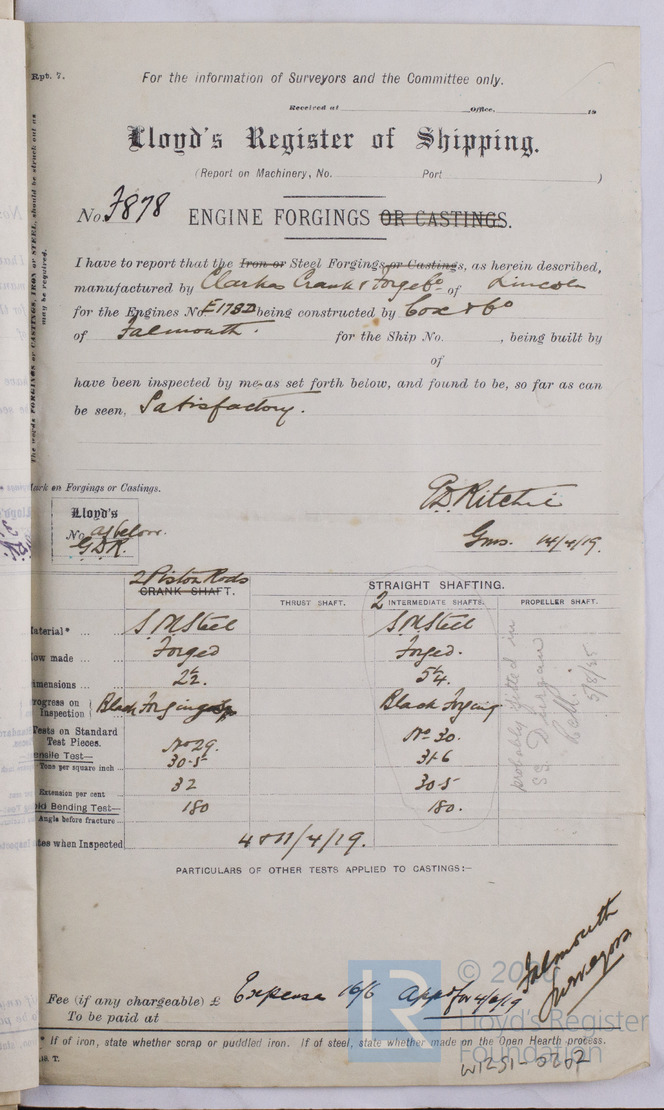 Rpt. 7.
For the information of Surveyors and the Committee only.
Received at Office, 19
Lloyd's Register of Shipping.
(Report on Machinery, No. Port )
No. 7878 ENGINE FORGINGS OR CASTINGS.
The words FORGINGS or CASTINGS, IRON or STEEL, should be struck out as may be required.
I have to report that the Iron or Steel Forgings or Castings, as herein described,
manufactured by Clarkes Crank & Forge Co of Lincoln
for the Engines No. E178D being constructed by Cox & Co
of Falmouth. for the Ship No. , being built by
of
have been inspected by me as set forth below, and found to be, so far as can
be seen, Satisfactory.
Mark on Forgings or Castings.
Lloyd's
No. as below.
G.D.R.
G.D. Ritchie
Gms. 14/4/19.
2 Piston Rods
CRANK SHAFT.
STRAIGHT SHAFTING.
THRUST SHAFT. 2 INTERMEDIATE SHAFTS. PROPELLER SHAFT.
Material* ... S.M. Steel S.M. Steel
How made ... Forged Forged.
Dimensions ... 2½. 5¼.
Progress on Inspection Black Forging Black Forging
Tests on Standard Test Pieces. No 29. No 30.
Tensile Test— Tons per square inch ... 30.5 31.6
Extension per cent 32 30.5
Cold Bending Test— Angle before fracture ... 180 180.
Dates when Inspected 4 & 11/4/19.
probably fitted in
SS Durgan
Coll.
5/8/25
PARTICULARS OF OTHER TESTS APPLIED TO CASTINGS:—
Falmouth
Surveyors
Fee (if any chargeable) £ Expenses 16/6 Appd for 4/6/19
To be paid at
* If of iron, state whether scrap or puddled iron. If of steel, state whether made on the Open Hearth process.
LR
Lloyd's Register
Foundation
W1251-0207